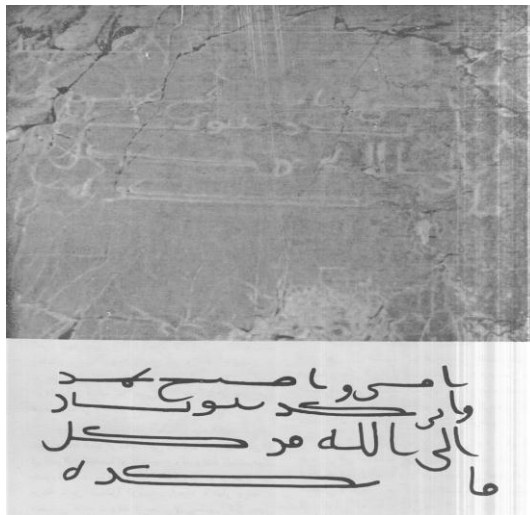 امسى واصبح عمر
وابو بكر
الى الله من كل
ما يكره